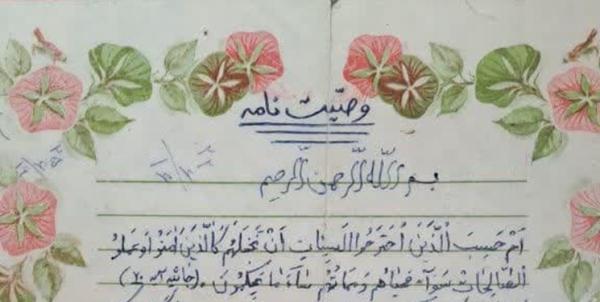 وصیّت نامه
بسم الله الرحمن الرحیم
اَم حَسِبَ الَّذینَ اجْتَرَحُوا السَّیِّئاتِ اَنْ نَجْعَلَهُم کَالَّذینَ امَنُوا وَ عَمِلُو
الصّالِحاتِ سَوآءً مَحیاهُم وَ مَماتُهُم سآءَ ما یَحکُمُونَ. (جاثیه